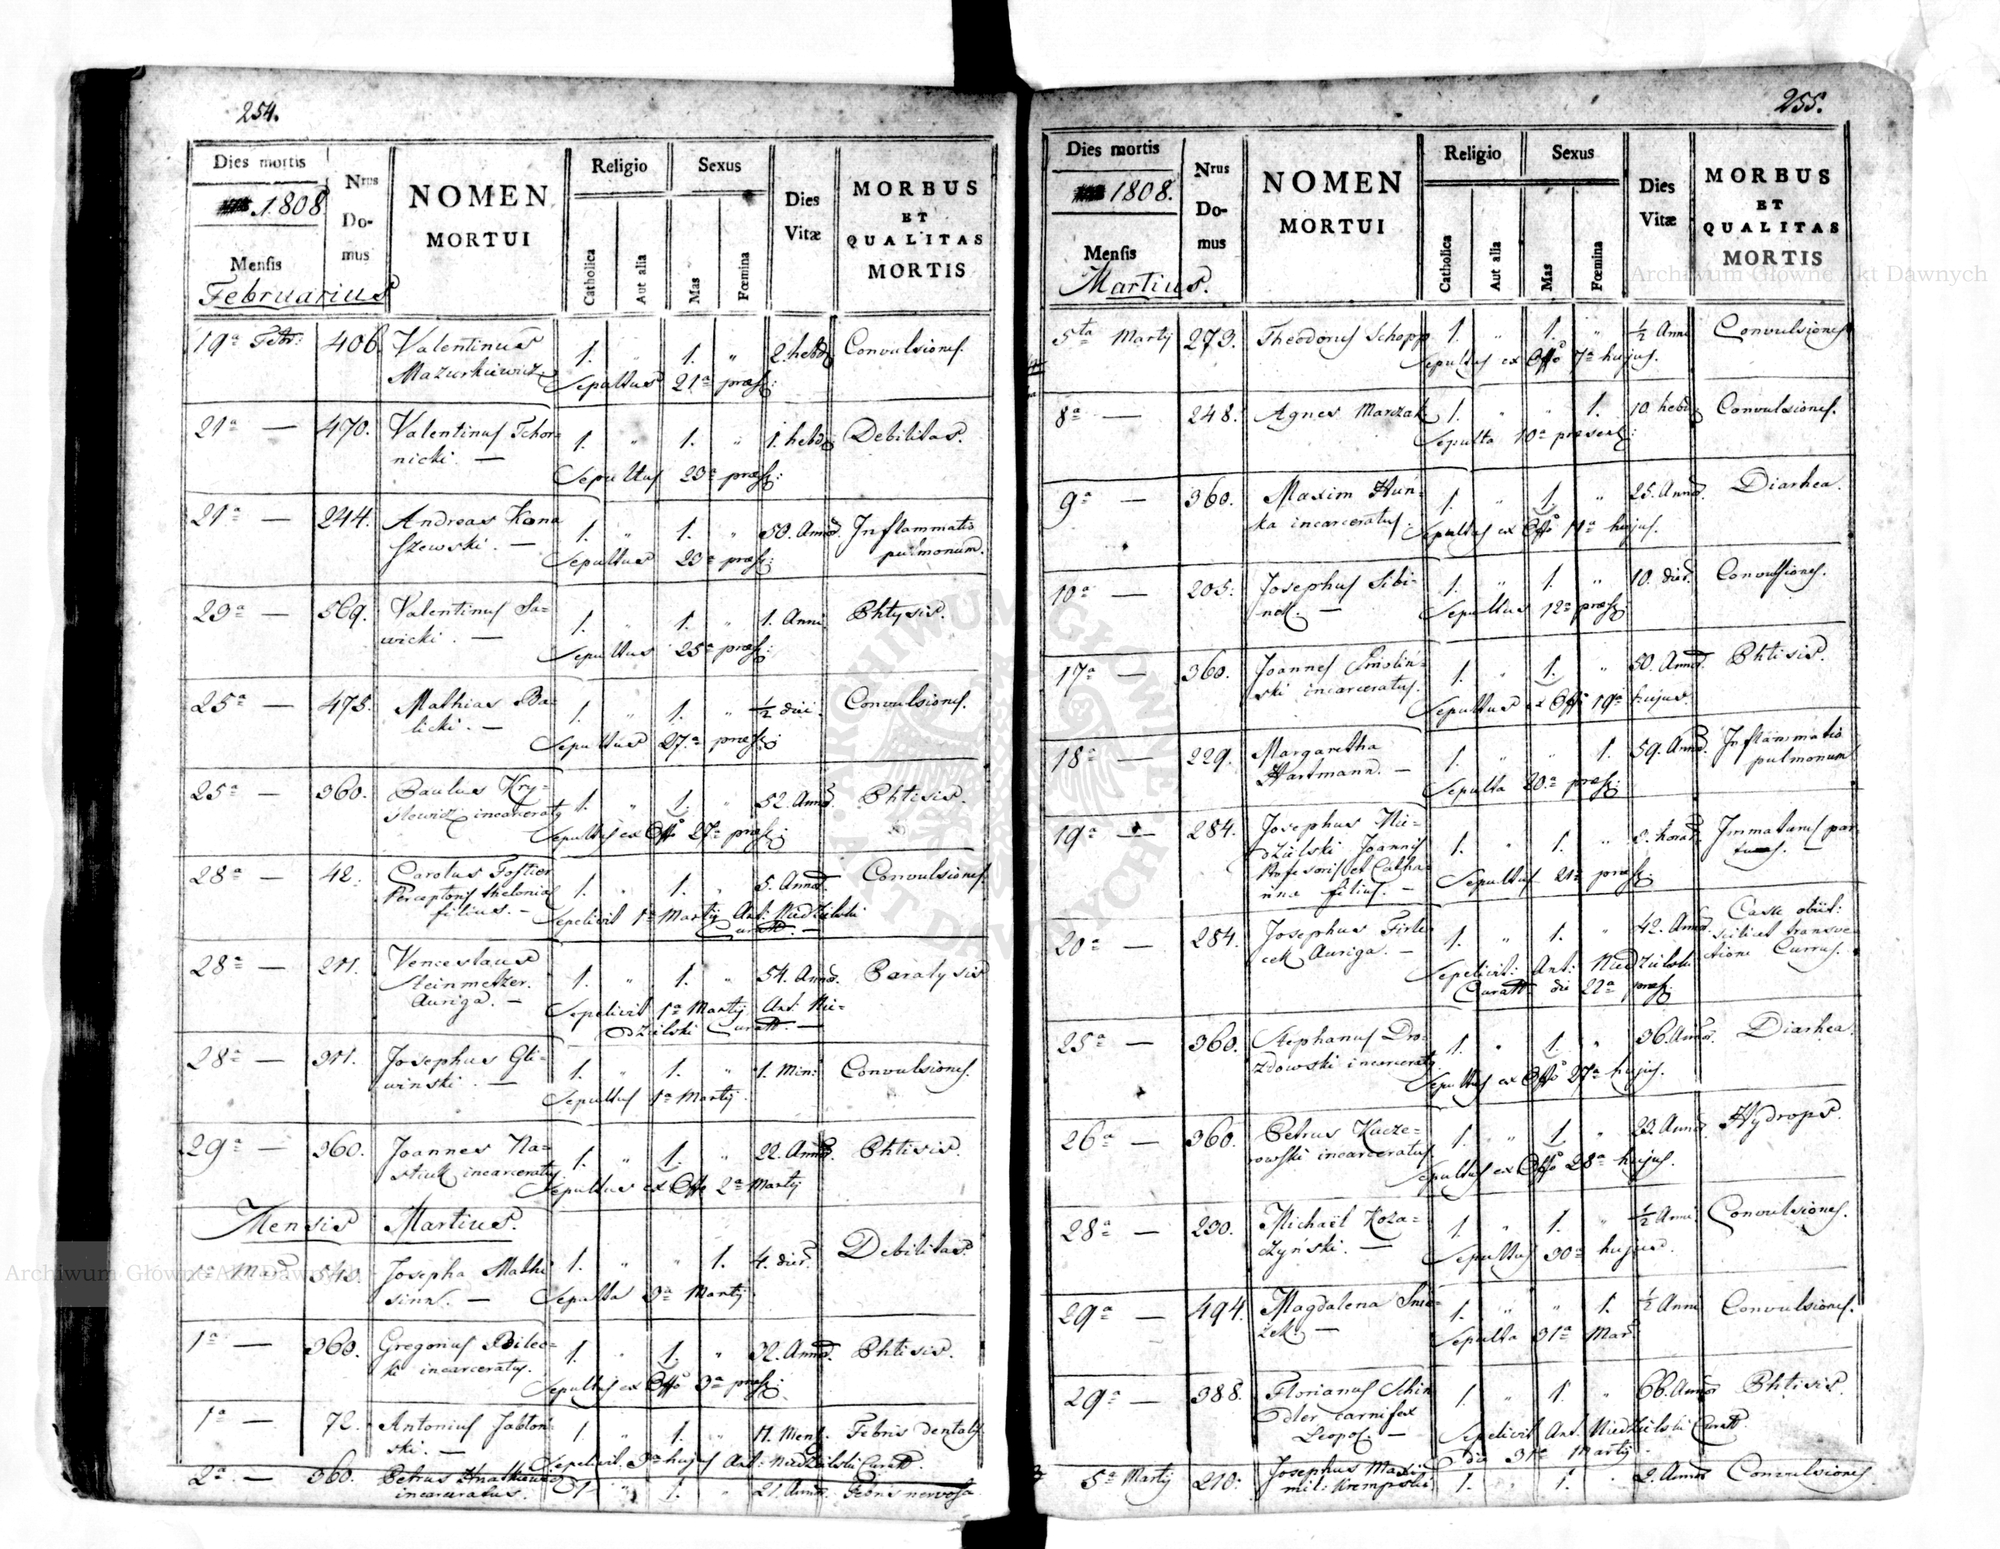 254.
Dies mortis
1808
Mensis
Februarius
Nrus
Do-
mus
NOMEN
MORTUI
Religio
Catholica
Aut alia
Sexus
Mas
Fœmina
Dies
Vitæ
MORBUS
ET
QUALITAS
MORTIS
19a Febr: 406. Valentinus 1. " 1. " 2. hebd Convulsiones.
Mazurkiewicz Sepultus 21a præs:
21a — 470. Valentinus Tchor- 1. " 1. " 1. hebd Debilitas.
nicki. — Sepultus 23a præs:
21a — 244. Andreas Kona 1. " 1. " 50. Annor. Inflammatio
szewski. — Sepultus 23a præs: pulmonum.
23a — 569. Valentinus Sa- 1. " 1. " 1. Anni Phtysis.
wicki. — Sepultus 25a præs:
25a — 475. Mathias Ba- 1. " 1. " 1/2 diei. Convulsiones.
licki. — Sepultus 27a præs:
25a — 360. Paulus Kry- 1. " 1. " 52. Annor. Phtisis.
incarceratus Sepultus ex Offo 27a præs:
28a — 42. Carolus Fostier 1. " 1. " 5. Annor. Convulsiones.
Perceptoris thelonial
filius. — Sepelivit 1a Martij Ant: Niedzielski
Curatt. —
28a — 211. Venceslaus 1. " 1. " 54. Annor. Paralysis
Steinmetzer.
Auriga. — Sepelivit 1a Martij Ant. Nie-
dzielski Curatt. —
28a — 311. Josephus Gli- 1. " 1. " 1. Min: Convulsiones.
winski. — Sepultus 1a Martij
29a — 360. Joannes Na- 1. " 1. " 22. Annor. Phtisis.
stiuk incarceratus Sepultus ex Offo 2a Martij
Mensis Martius.
1a Mar 540. Josepha Mathi 1. " " 1. 4. dier. Debilitas.
— Sepulta 3a Martij
1a — 360. Gregorius Bilec- 1. " 1. " 32. Annor. Phtisis.
ki incarceratus. Sepultus ex Offo 3a præs:
1a — 72. Antonius Jabłoń- 1. " 1. " 11. Mens. Febris dentalis
ski. — Sepelivit 3a hujus Ant: Niedzielski Curatt.
2a — 360. Petrus Hnatkiewicz 1. " 1. " 21. Annor. Febris nervosa
incarceratus.
255.
Dies mortis
1808.
Mensis
Martius.
Nrus
Do-
mus
NOMEN
MORTUI
Religio
Catholica
Aut alia
Sexus
Mas
Fœmina
Dies
Vitæ
MORBUS
ET
QUALITAS
MORTIS
5ta Martij 273. Theodorus Schopp 1. " 1. " 1/2 Anni Convulsiones
Sepultus ex Offo 7a hujus.
8a — 248. Agnes Marszak 1. " " 1. 10. hebd Convulsiones.
Sepulta 10a present:
9a — 360. Maxim Huń- 1. " 1. " 25. Annor. Diarhea.
ka incarceratus. Sepultus ex Offo 11a hujus.
10a — 205. Josephus Sibi- 1. " 1. " 10. dier. Convulsiones.
nek. — Sepultus 12a præs:
17a — 360. Joannes Smoliń- 1. " 1. " 50. Annor. Phtisis.
ski incarceratus. Sepultus ex Offo 19a hujus.
18a — 229. Margaretha 1. " " 1. 59. Annor. Inflammatio
Hartmann. — Sepulta 20a præs: pulmonum
19a — 284. Josephus Nie- 1. " 1. " 2. horar. Immaturus par-
dzielski Joannis tus.
Profesoris et Catha-
rinæ filius. — Sepultus 21a præs:
20a — 284. Josephus Firle- 1. " 1. " 42. Annor. Casu obiit:
cek Auriga. — scilicet transve-
Sepelivit: Ant: Niedzielski ctione Currus.
Curatt. die 22a præs:
25a — 360. Stephanus Dro- 1. " 1. " 36. Annor. Diarhea.
zdowski incarceratus Sepultus ex Offo 27a hujus.
26a — 360. Petrus Kucze- 1. " 1. " 23. Annor. Hydrops.
rowski incarceratus Sepultus ex Offo 28a hujus.
28a — 230. Michaël Koza- 1. " 1. " 1/2 Anni. Convulsiones.
czyński. — Sepultus 30a hujus.
29a — 494. Magdalena 1. " " 1. 1/2 Anni Convulsiones.
— Sepulta 31a Mar
29a — 388. Florianus Schin 1. " 1. " 66. Annor Phtisis.
dler carnifex
Leopol: — Sepelivit Ant. Niedzielski Curatt.
die 31a Martij.
5a Martij 210. Josephus Maxi- 1. " 1. " 2. Annor Convulsiones.
mil: Krempski
Archiwum Główne Akt Dawnych
Archiwum Główne Akt Dawnych
ARCHIWUM GŁÓWNE AKT DAWNYCH